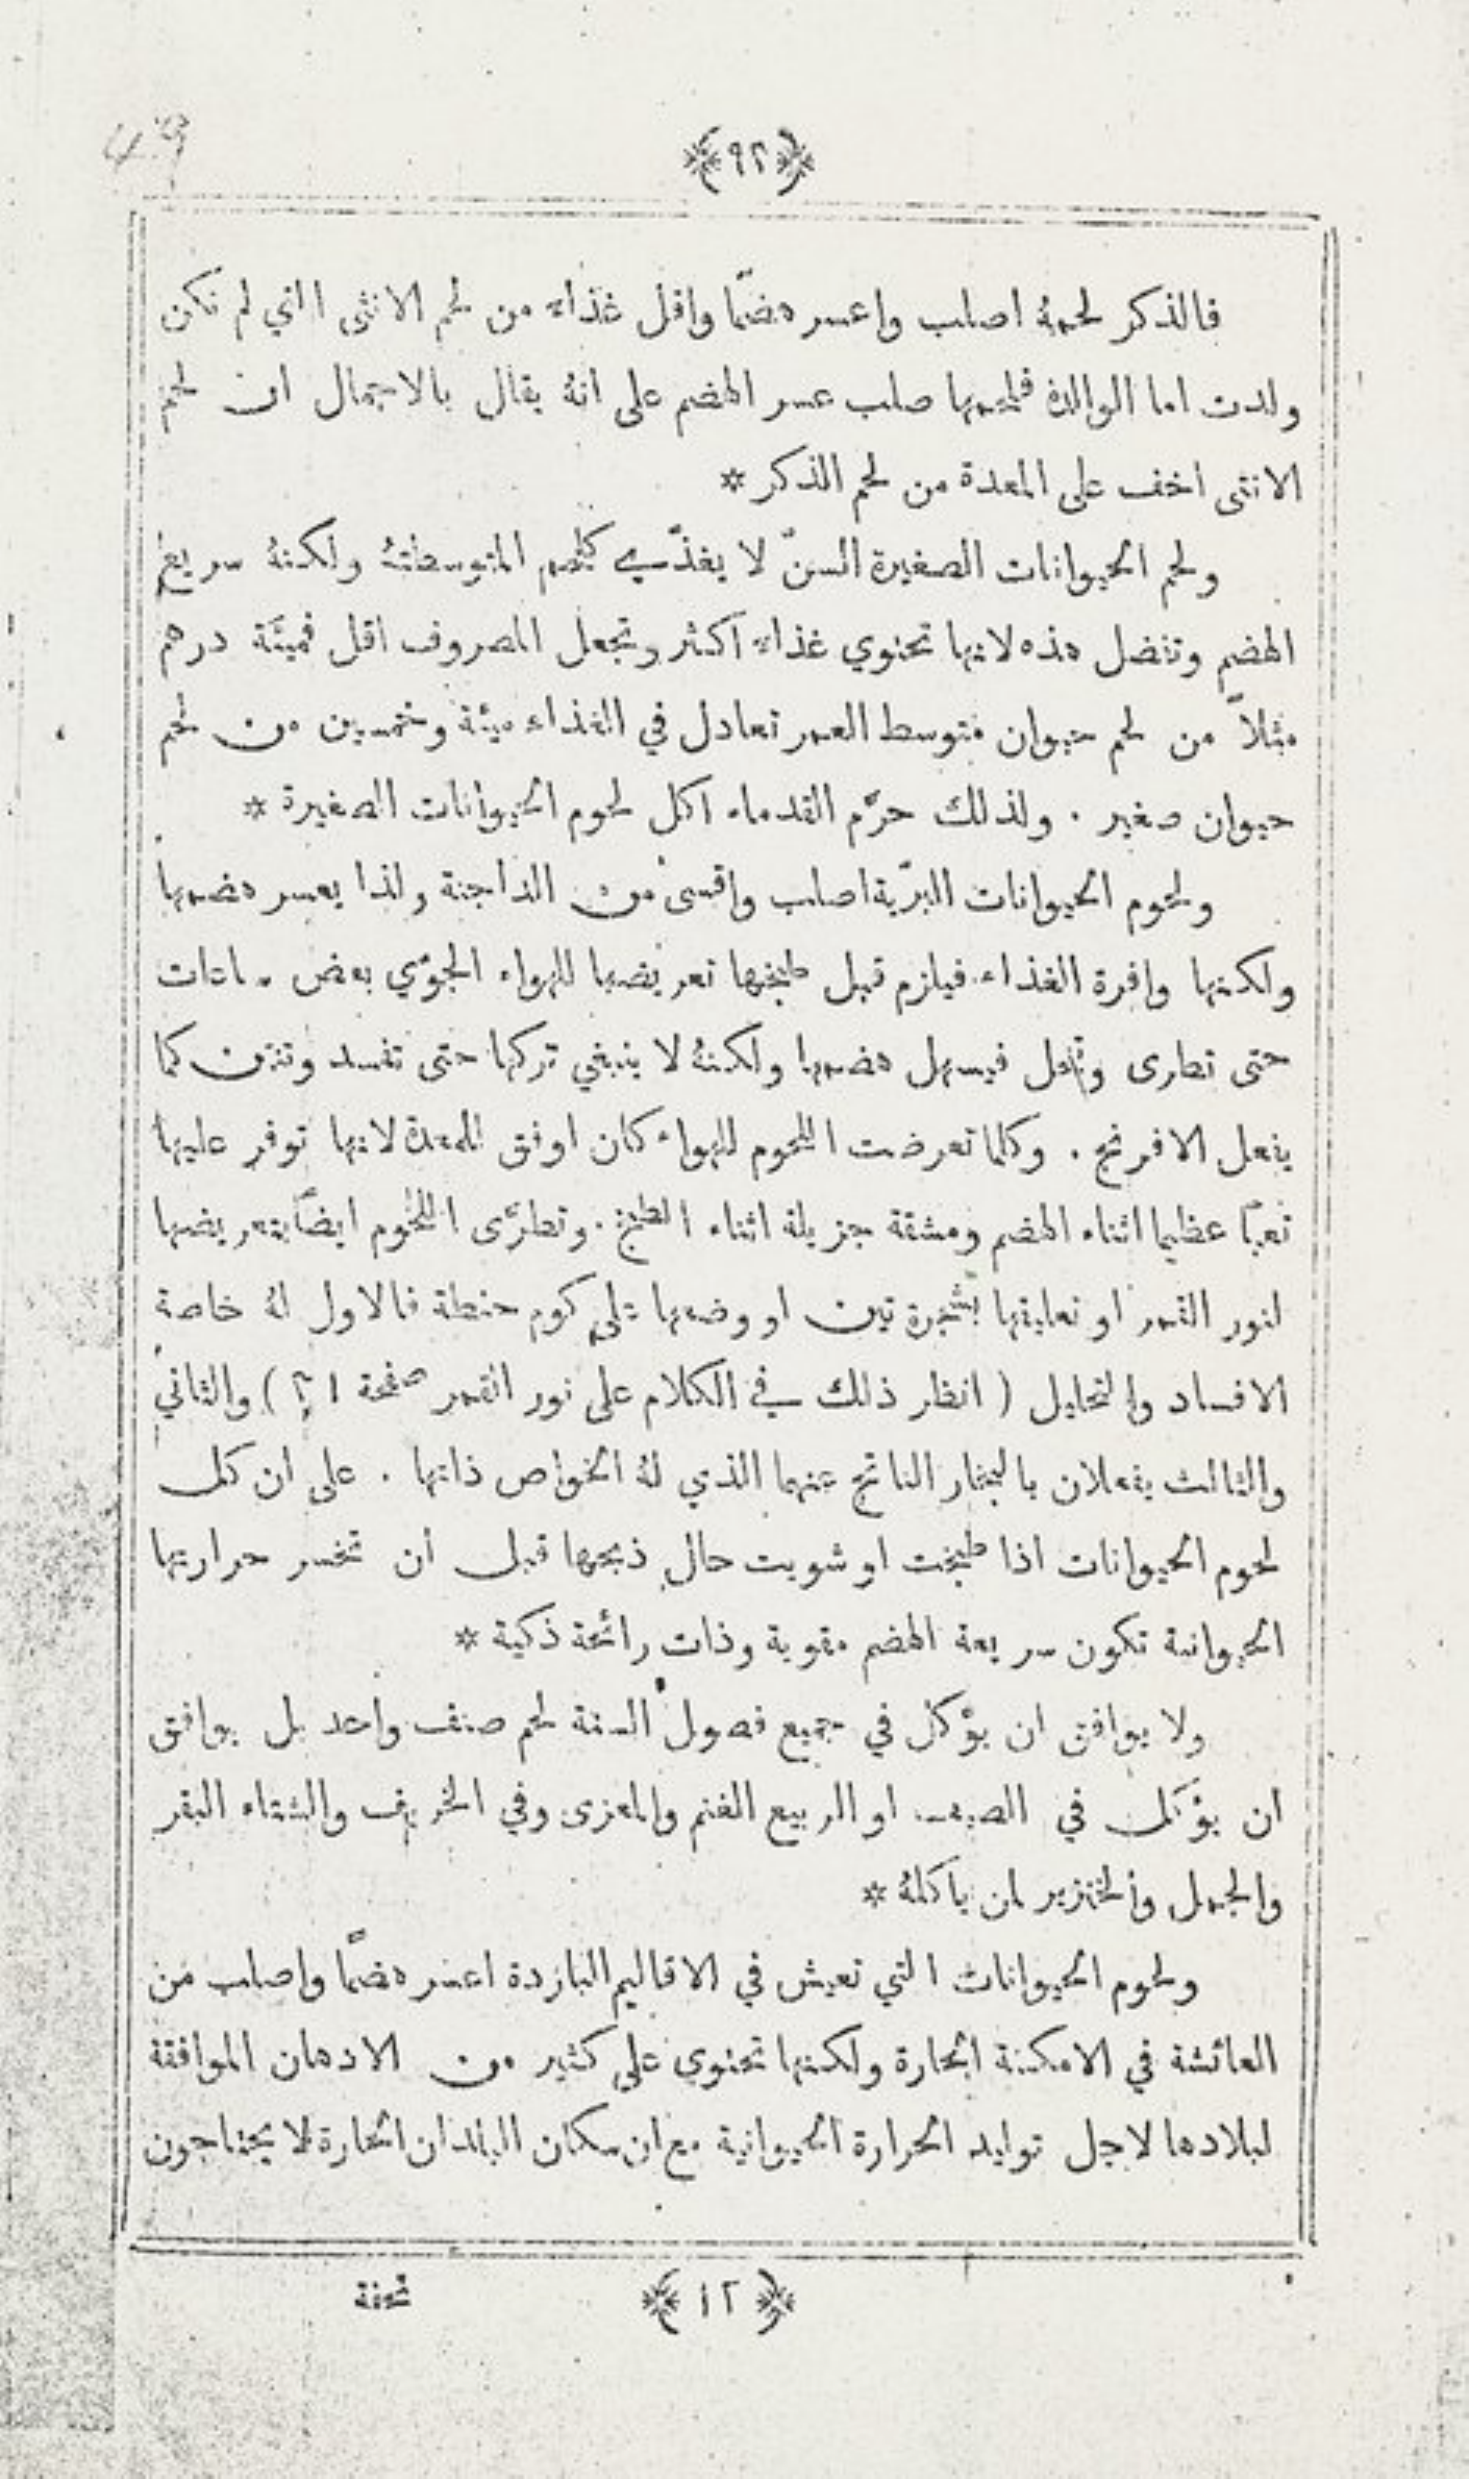 49
﴿٩٢﴾
فالذكر لحمهُ اصلب واعسر هضمًا واقل غذاء من لحم الانثى التي لم تكن
ولدت اما الوالدة فلحمها صلب عسر الهضم على انهُ يقال بالاجمال ان لحم
الانثى اخف على المعدة من لحم الذكر *
ولحم الحيوانات الصغيرة السنّ لا يغذّي كلحم المتوسطتهُ ولكنهُ سريع
الهضم وتفضل هذه لانها تحتوي غذاء اكثر وتجعل المصروف اقل فميئَة درهم
مثلاً من لحم حيوان متوسط العمر تعادل في الغذاء ميئة وخمسين من لحم
حيوان صغير . ولذلك حرَّم القدماء اكل لحوم الحيوانات الصغيرة *
ولحوم الحيوانات البرّية اصلب واقسى من الداجنة ولذا يعسر هضمها
ولكنها وافرة الغذاء فيلزم قبل طبخها تعريضها للهواء الجوّي بعض ساعات
حتى تطرى وتنحل فيسهل هضمها ولكنهُ لا ينبغي تركها حتى تفسد وتنتن كما
يفعل الافرنج . وكلما تعرضت اللحوم للهواء كان اوفق للمعدة لانها توفر عليها
تعبًا عظيما اثناء الهضم ومشقة جزيلة اثناء الطبخ . وتطرَّى اللحوم ايضًا بتعريضها
لنور القمر او تعليقها بشجرة تين او وضعها على كوم حنطة فالاول لهُ خاصة
الافساد والتحليل ( انظر ذلك في الكلام على نور القمر صفحة ٢١ ) والثاني
والثالث يفعلان بالبخار الناتج عنهما الذي لهُ الخواص ذاتها . على ان كل
لحوم الحيوانات اذا طبخت او شويت حال ذبحها قبل أن تخسر حرارتها
الحيوانية تكون سريعة الهضم مقوية وذات رائحة ذكية *
ولا يوافق ان يؤكل في جميع فصول السنة لحم صنف واحد بل يوافق
ان يؤكل في الصيف او الربيع الغنم والمعزى وفي الخريف والشتاء البقر
والجمل والخنزير لمن ياكلهُ *
ولحوم الحيوانات التي تعيش في الاقاليم الباردة اعسر هضمًا واصلب من
العائشة في الامكنة الحارة ولكنها تحتوي على كثير من الادهان الموافقة
لبلادها لاجل توليد الحرارة الحيوانية مع ان سكان البلدان الحارة لا يحتاجون
﴿١٢﴾ تحفة